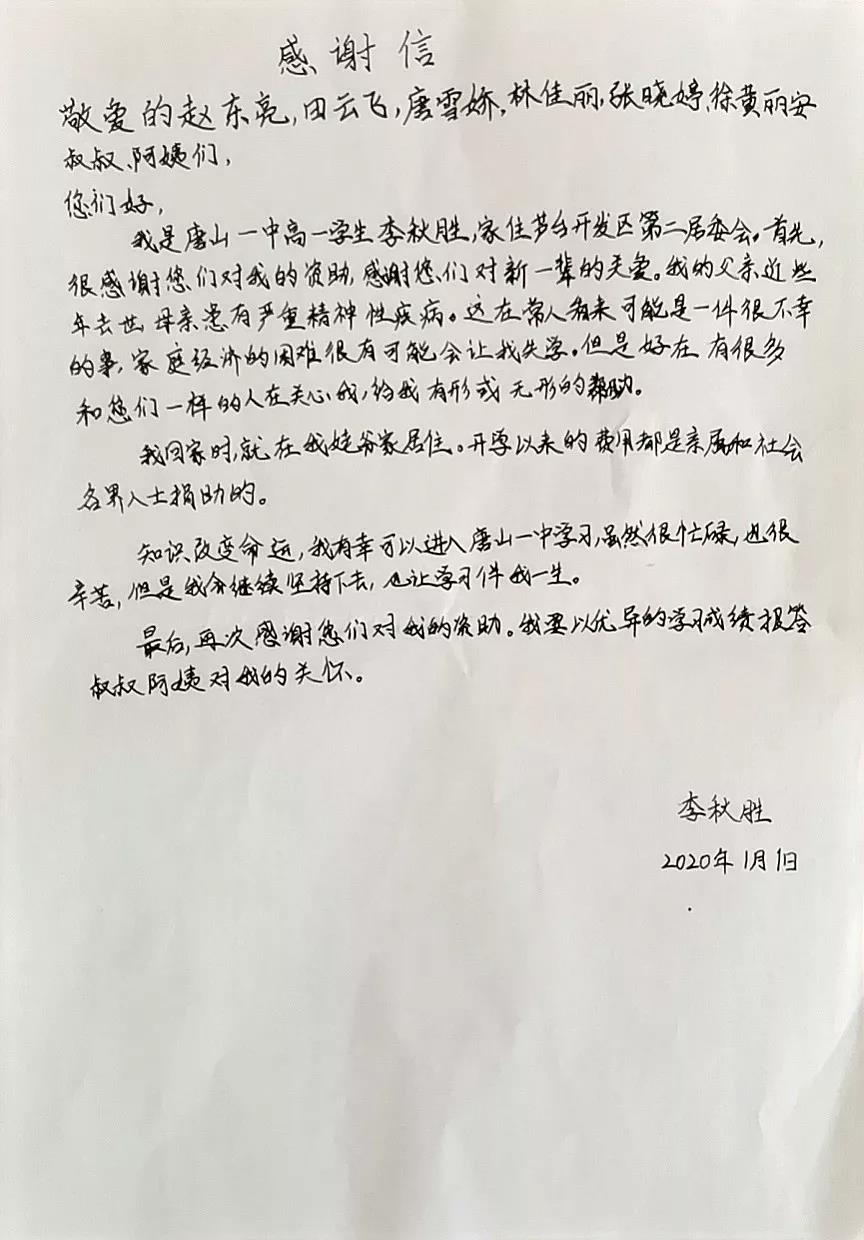 感谢信
敬爱的赵东亮,田云飞,唐雪娇,林佳丽,张晓婷、徐黄丽安
叔叔、阿姨们,
您们好,
我是唐山一中高一学生李秋胜,家住芦台开发区第二居委会。首先,
很感谢您们对我的资助,感谢您们对新一辈的关爱。我的父亲近些
年去世,母亲患有严重精神性疾病。这在常人看来可能是一件很不幸
的事,家庭经济的困难很有可能会让我失学。但是好在有很多
和您们一样的人在关心我,给我有形或无形的帮助。
我回家时,就在我姥爷家居住。开学以来的费用都是亲属和社会
各界人士捐助的。
知识改变命运,我有幸可以进入唐山一中学习,虽然很忙碌,也很
辛苦,但是我会继续坚持下去,也让学习伴我一生。
最后,再次感谢您们对我的资助。我要以优异的学习成绩报答
叔叔阿姨对我的关怀。
李秋胜
2020年1月1日